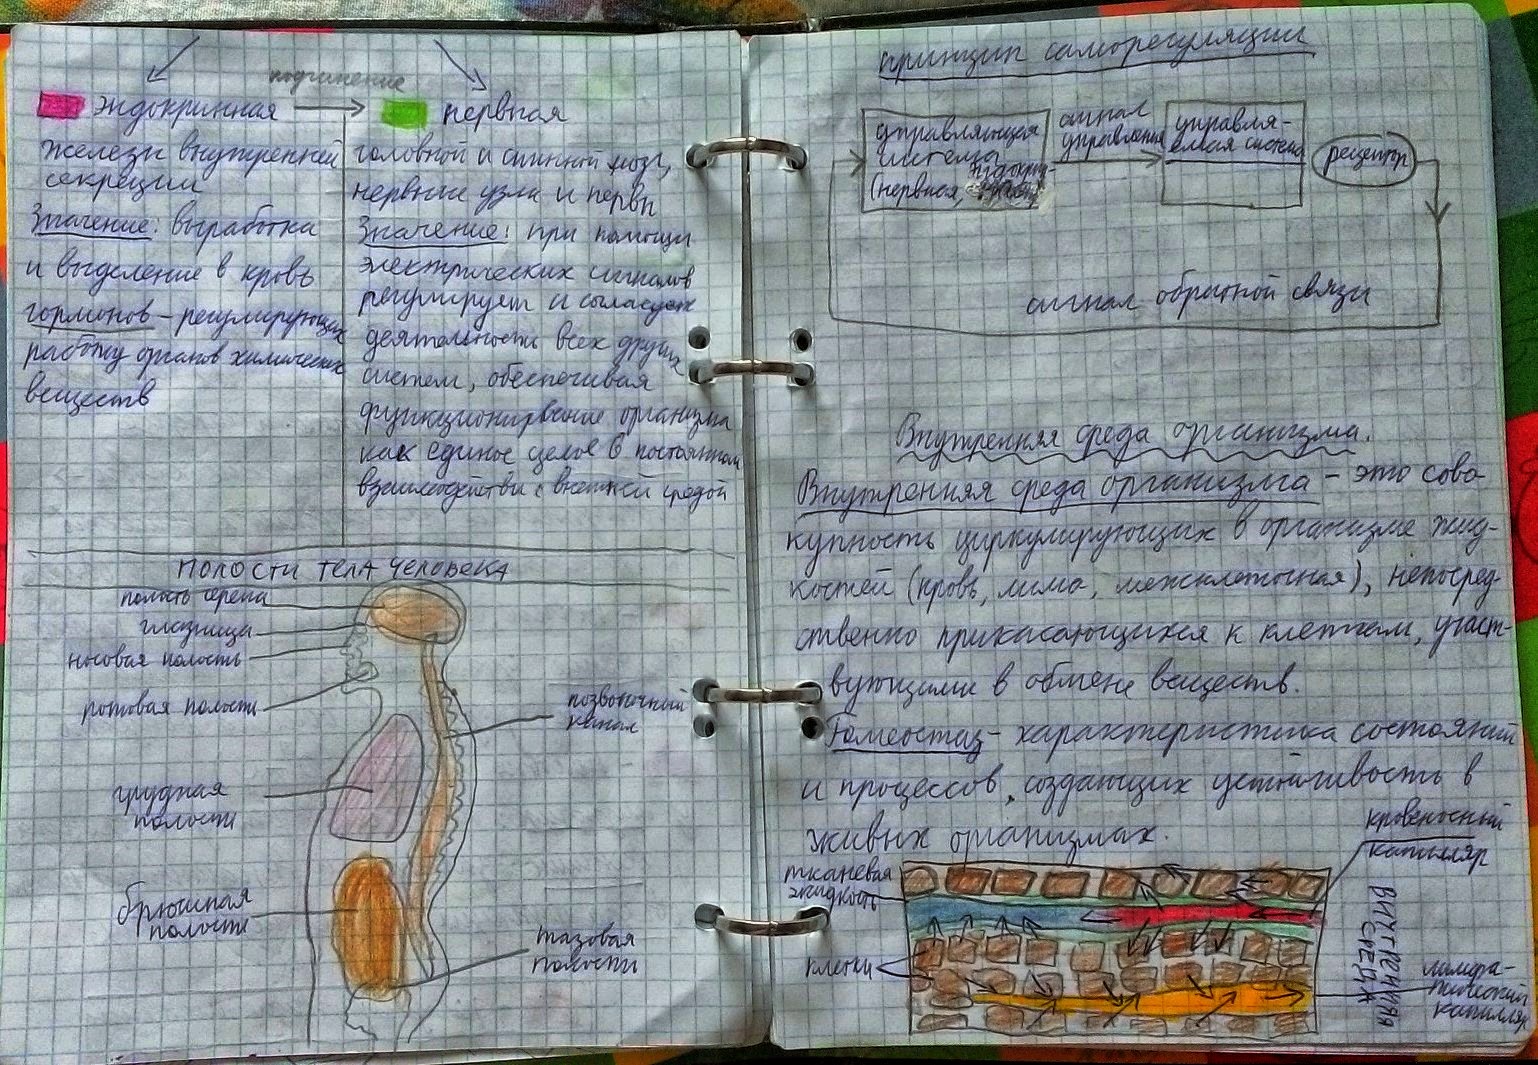 подчинение
эндокринная
железы внутренней
секреции
Значение: выработка
и выделение в кровь
гормонов - регулирующих
работу органов химических
веществ
нервная
головной и спинной мозг,
нервные узлы и нервы
Значение: при помощи
электрических сигналов
регулирует и согласует
деятельности всех других
систем, обеспечивая
функционирвание организма
как единое целое в постоянном
взаимодействии с внешней средой
ПОЛОСТИ ТЕЛА ЧЕЛОВЕКА
полость черепа
глазница
носовая полость
ротовая полость
позвоночный
канал
грудная
полость
брюшная
полость
тазовая
полость
принцип саморегуляции
управляющая
система
(нервная, эндокри-
сигнал
управления
управля-
емая система
рецептор
сигнал обратной связи
Внутренняя среда организма.
Внутренняя среда организма - это сово-
купность циркулирующих в организме жид-
костей (кровь, лимфа, межклеточная), непосред-
ственно прикасающихся к клеткам, участ-
вующими в обмене веществ.
Гомеостаз - характеристика состояний
и процессов, создающих устойчивость в
живых организмах.
кровеносный
капилляр
тканевая
жидкость
клетки
ВНУТРЕННЯЯ
СРЕДА
лимфа-
тический
капилляр